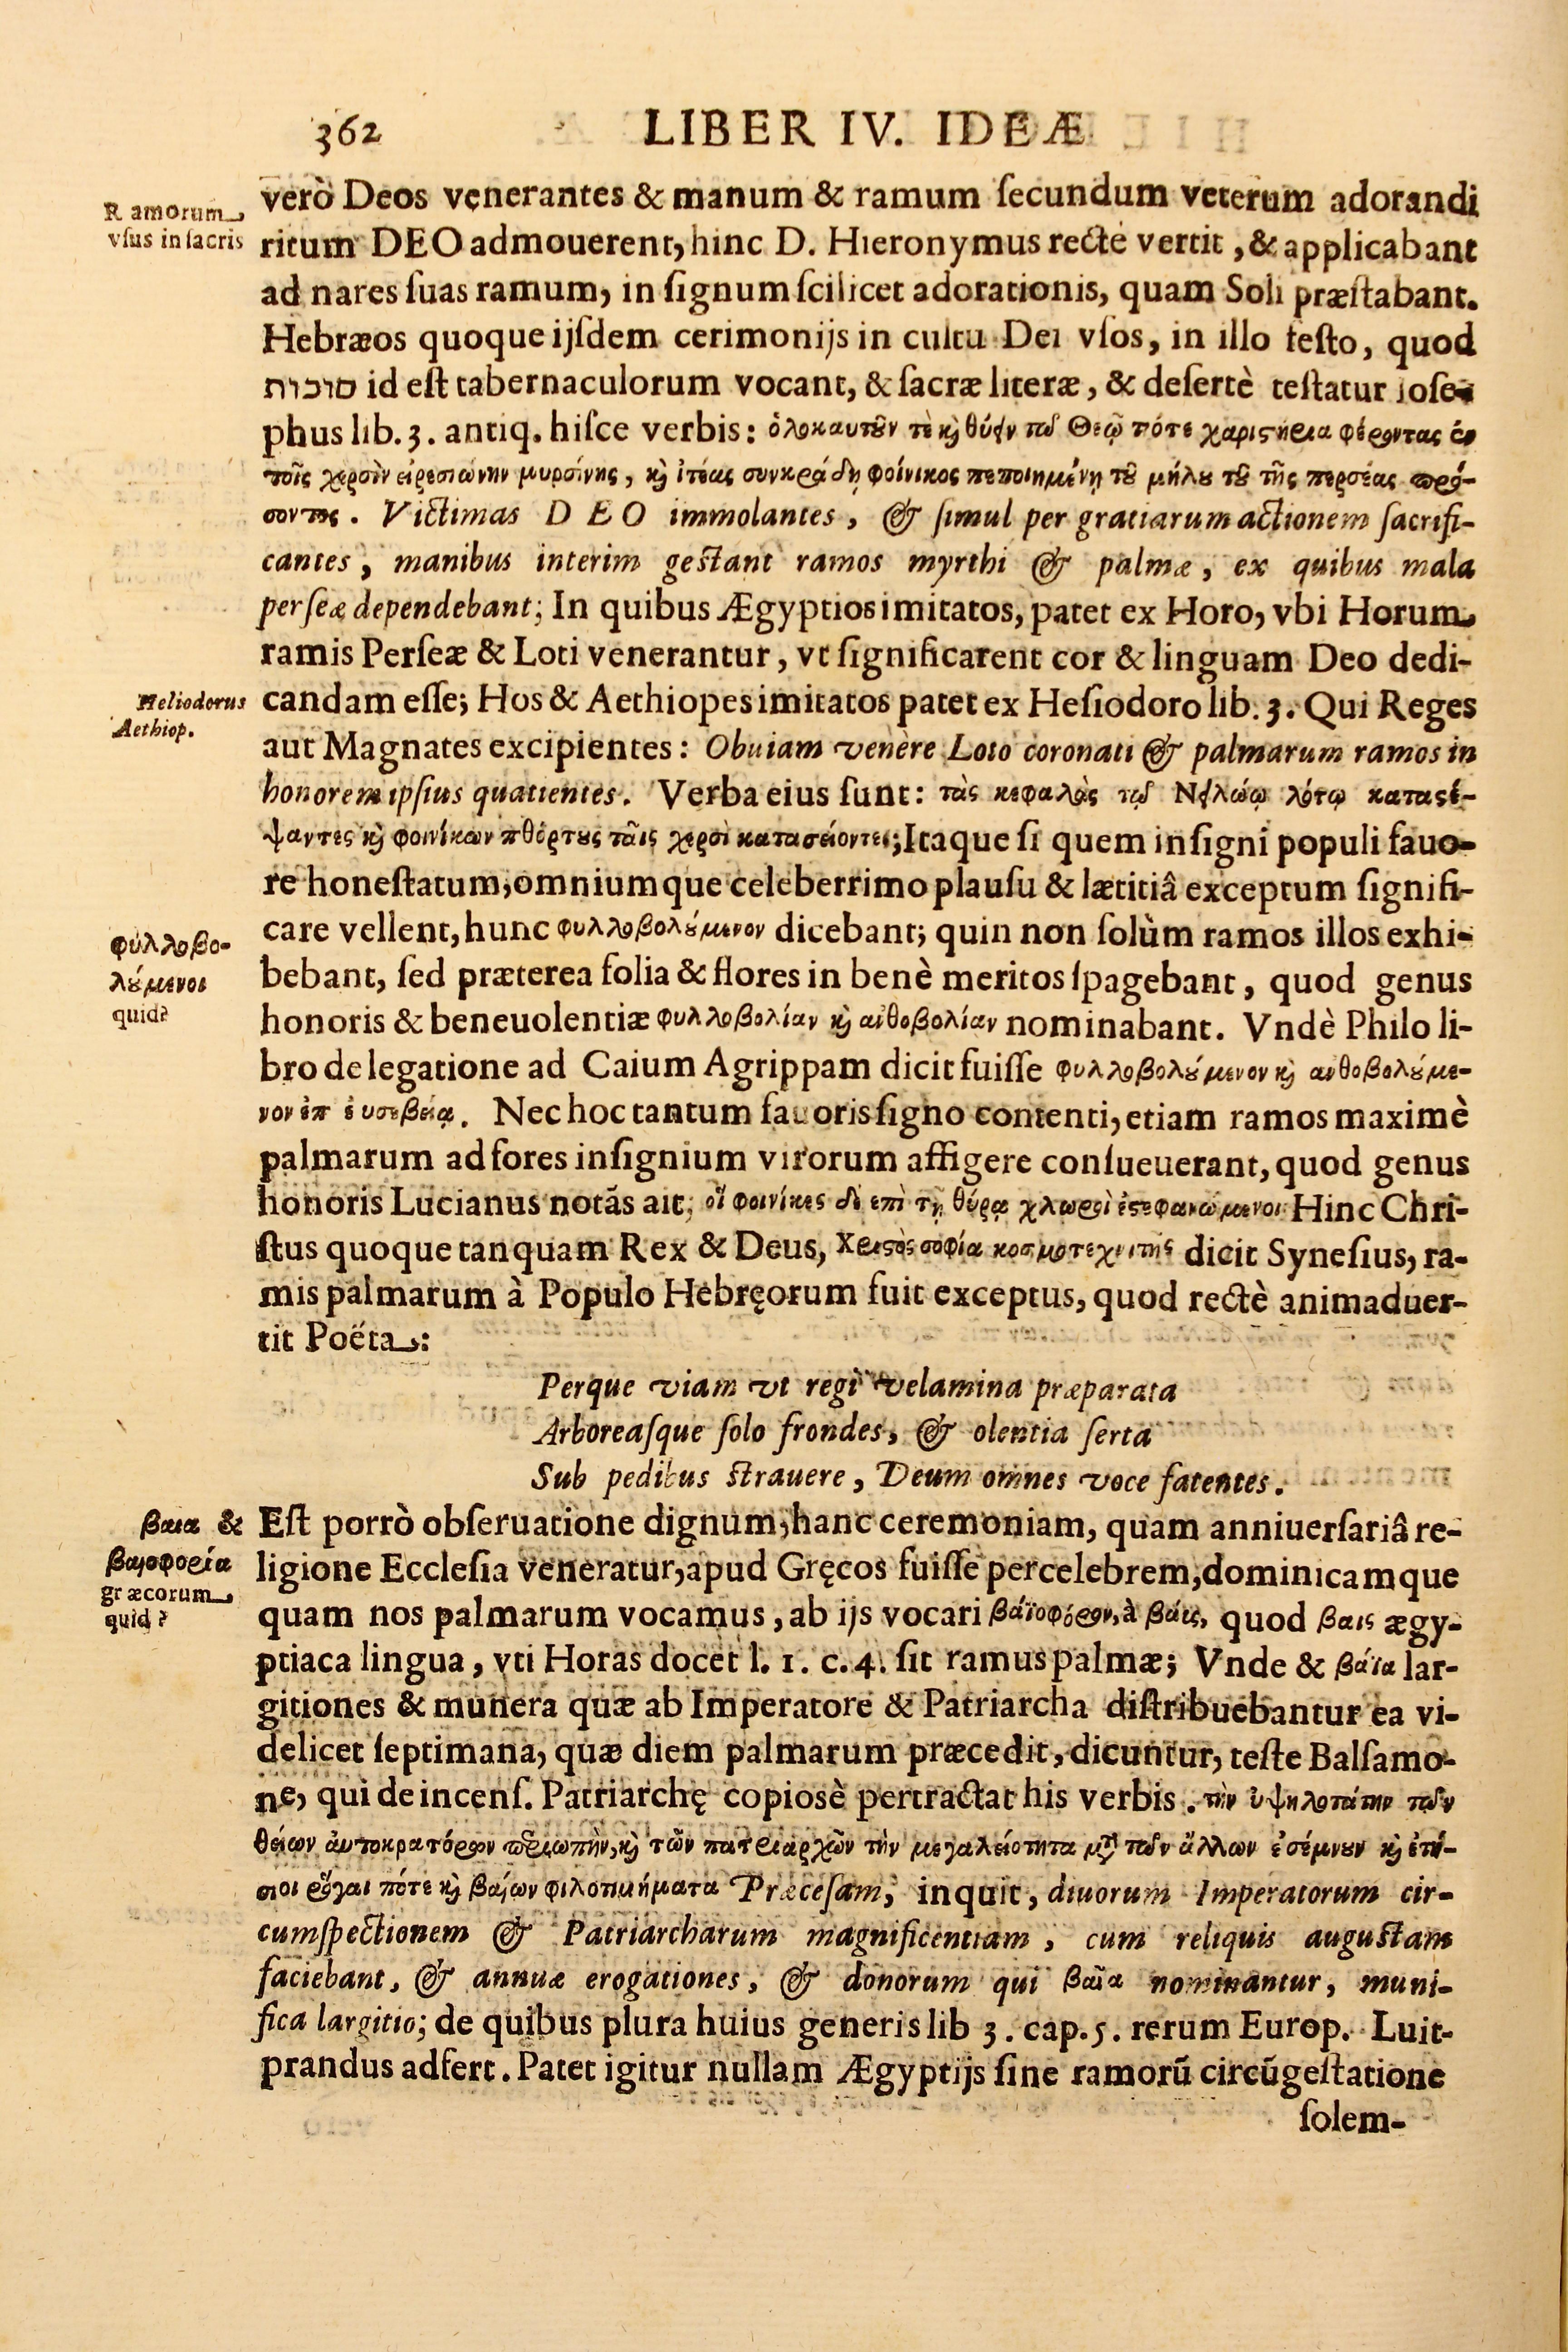 362 LIBER IV. IDEÆ
Ramorum
vſus in ſacris
verò Deos venerantes & manum & ramum ſecundum veterum adorandi
ritum DEO admouerent, hinc D. Hieronymus rectè vertit, & applicabant
ad nares ſuas ramum, in ſignum ſcilicet adorationis, quam Soli præſtabant.
Hebræos quoque ijſdem cerimonijs in cultu Dei vſos, in illo feſto, quod
סוכות id eſt tabernaculorum vocant, & ſacræ literæ, & deſertè teſtatur Ioſe-
phus lib. 3. antiq. hiſce verbis: ὁλοκαυτοῦν τὲ καὶ θύειν τῷ Θεῷ τότε χαριστήρια φέροντας ἐν
τοῖς χερσὶν εἰρεσιώνην μυρσίνης, καὶ ἰτέας συνκράδῃ φοίνικος πεποιημένῃ τοῦ μήλου τοῦ τῆς περσέας προσ-
σοντος. Victimas DEO immolantes, & ſimul per gratiarum actionem ſacrifi-
cantes, manibus interim geſtant ramos myrthi & palmæ, ex quibus mala
perſeæ dependebant; In quibus Ægyptios imitatos, patet ex Horo, vbi Horum
ramis Perſeæ & Loti venerantur, vt ſignificarent cor & linguam Deo dedi-
Heliodorus
Aethiop.
candam eſſe; Hos & Aethiopes imitatos patet ex Heſiodoro lib. 3. Qui Reges
aut Magnates excipientes: Obuiam venère Loto coronati & palmarum ramos in
honorem ipſius quatientes. Verba eius ſunt: τὰς κεφαλὰς τῷ Νειλώῳ λότῳ καταστέ-
ψαντες καὶ φοινίκων πθόρτους ταῖς χερσὶ κατασείοντες; Itaque ſi quem inſigni populi fauo-
re honeſtatum, omniumque celeberrimo plauſu & lætitiâ exceptum ſignifi-
φυλλοβο-
λούμενοι
quid?
care vellent, hunc φυλλοβολούμενον dicebant; quin non ſolùm ramos illos exhi-
bebant, ſed præterea folia & flores in benè meritos ſpagebant, quod genus
honoris & beneuolentiæ φυλλοβολίαν καὶ ανθοβολίαν nominabant. Vndè Philo li-
bro de legatione ad Caium Agrippam dicit fuiſſe φυλλοβολούμενον καὶ ανθοβολούμε-
νον ἐπ ἐυσεβείᾳ. Nec hoc tantum fauoris ſigno contenti, etiam ramos maximè
palmarum ad fores inſignium virorum affigere conſueuerant, quod genus
honoris Lucianus notãs ait; οἵ φοινίκες δὲ επὶ τῇ θύρᾳ χλωροὶ ἐστεφανώμενοι Hinc Chri-
ſtus quoque tanquam Rex & Deus, Χριστὸς σοφία κοσμοτεχνιτής dicit Syneſius, ra-
mis palmarum à Populo Hebręorum fuit exceptus, quod rectè animaduer-
tit Poëta:
Perque viam vt regi velamina præparata
Arboreaſque ſolo frondes, & olentia ſerta
Sub pedibus ſtrauere, Deum omnes voce fatentes.
βαια &
βαιοφορία
græcorum
quid?
Eſt porrò obſeruatione dignum, hanc ceremoniam, quam anniuerſariâ re-
ligione Eccleſia veneratur, apud Gręcos fuiſſe percelebrem, dominicamque
quam nos palmarum vocamus, ab ijs vocari βάϊοφόρον, à βάις, quod βαις ægy-
ptiaca lingua, vti Horas docet l. 1. c. 4. ſit ramus palmæ; Vnde & βάϊα lar-
gitiones & munera quæ ab Imperatore & Patriarcha diſtribuebantur ea vi-
delicet ſeptimana, quæ diem palmarum præcedit, dicuntur, teſte Balſamo-
ne, qui de incenſ. Patriarchę copiosè pertractat his verbis. τὴν ὑψηλοτάτην τῶν
θείων ἀυτοκρατόρων περιωπὴν, καὶ τῶν πατριαρχῶν τὴν μεγαλειότητα μετὰ τῶν ἄλλων ἐσέμνυν καὶ ἐτή-
σιοι ῥόγαι πότε καὶ βαίων φιλοτιμήματα Præceſam, inquit, diuorum Imperatorum cir-
cumſpectionem & Patriarcharum magnificentiam, cum reliquis auguſtam
faciebant, & annuæ erogationes, & donorum qui βαῖα nominantur, muni-
fica largitio; de quibus plura huius generis lib 3. cap. 5. rerum Europ. Luit-
prandus adfert. Patet igitur nullam Ægyptijs ſine ramorũ circũgeſtatione
ſolem-